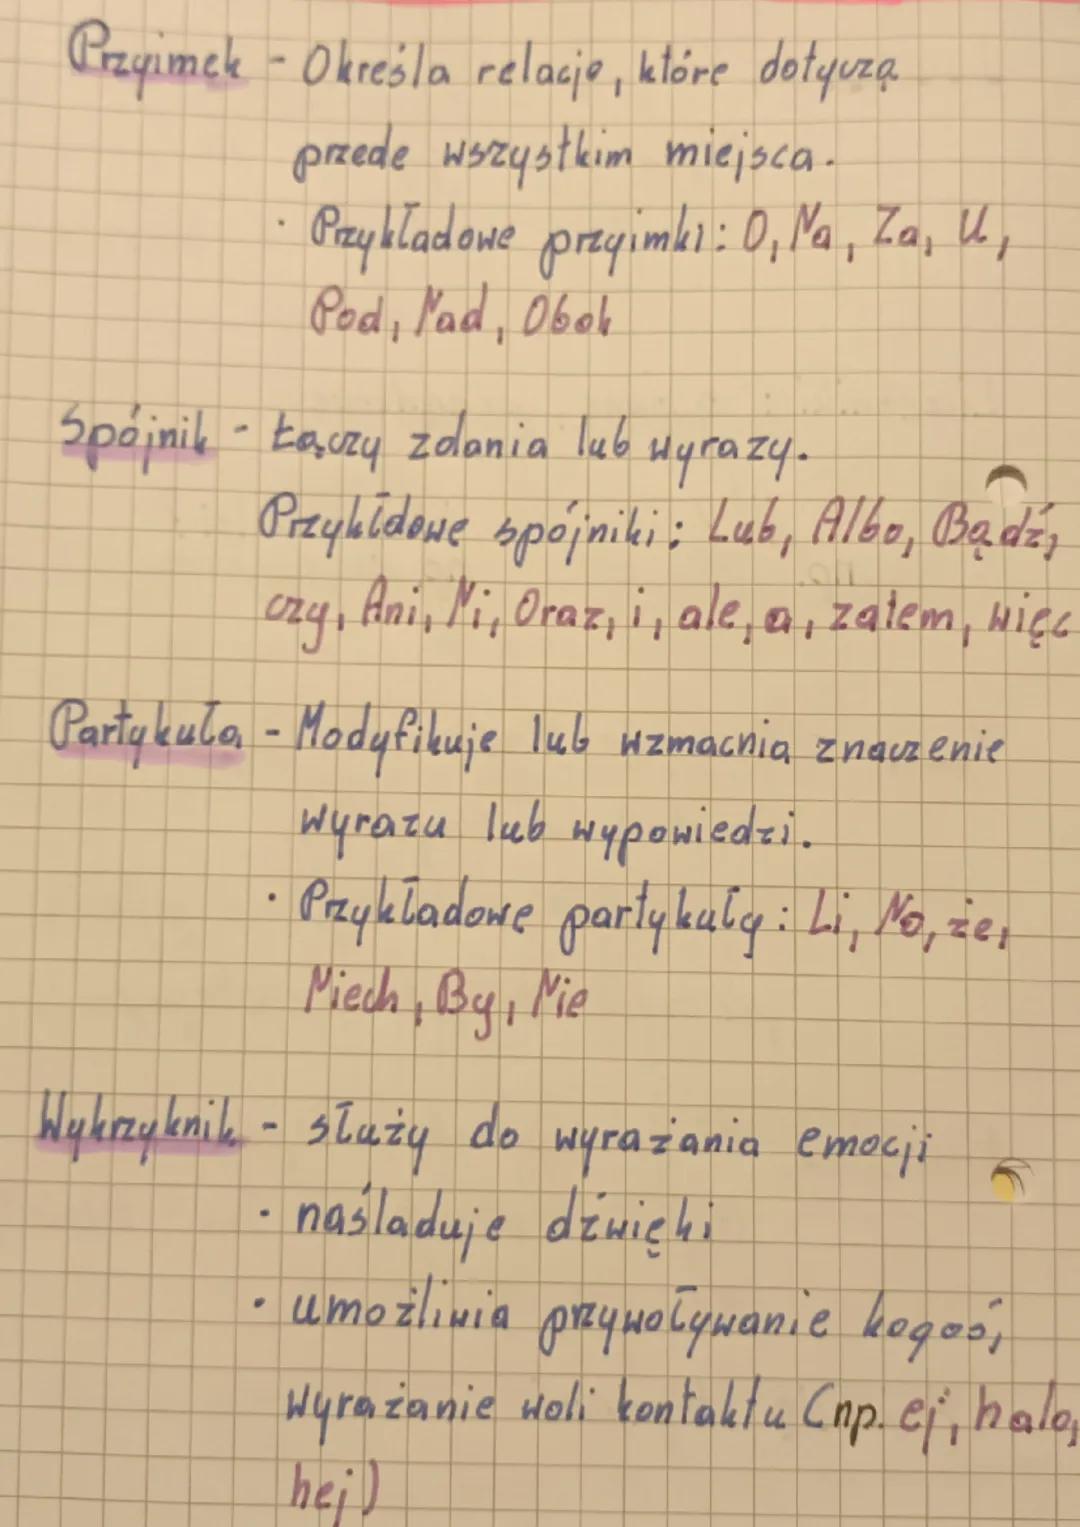 Przyimek - Określa relacje, które dotyczą
przede wszystkim miejsca.
· Przykładowe przyimki: O, Na, Za, U,
Pod, Nad, Obok
Spójnik - Łączy zdania lub wyrazy.
Przykłdowe spójniki: Lub, Albo, Bądź,
czy, Ani, Ni, Oraz, i, ale, a, zatem, więc
Partykuła - Modyfikuje lub wzmacnia znaczenie
wyrazu lub wypowiedzi.
· Przykładowe partykuły: Li, No, że,
Niech, By, Nie
Wykrzyknik - służy do wyrażania emocji
· naśladuje dźwięki
· umożliwia przywoływanie kogoś,
wyrażanie woli kontaktu (np. ej, halo,
hej)